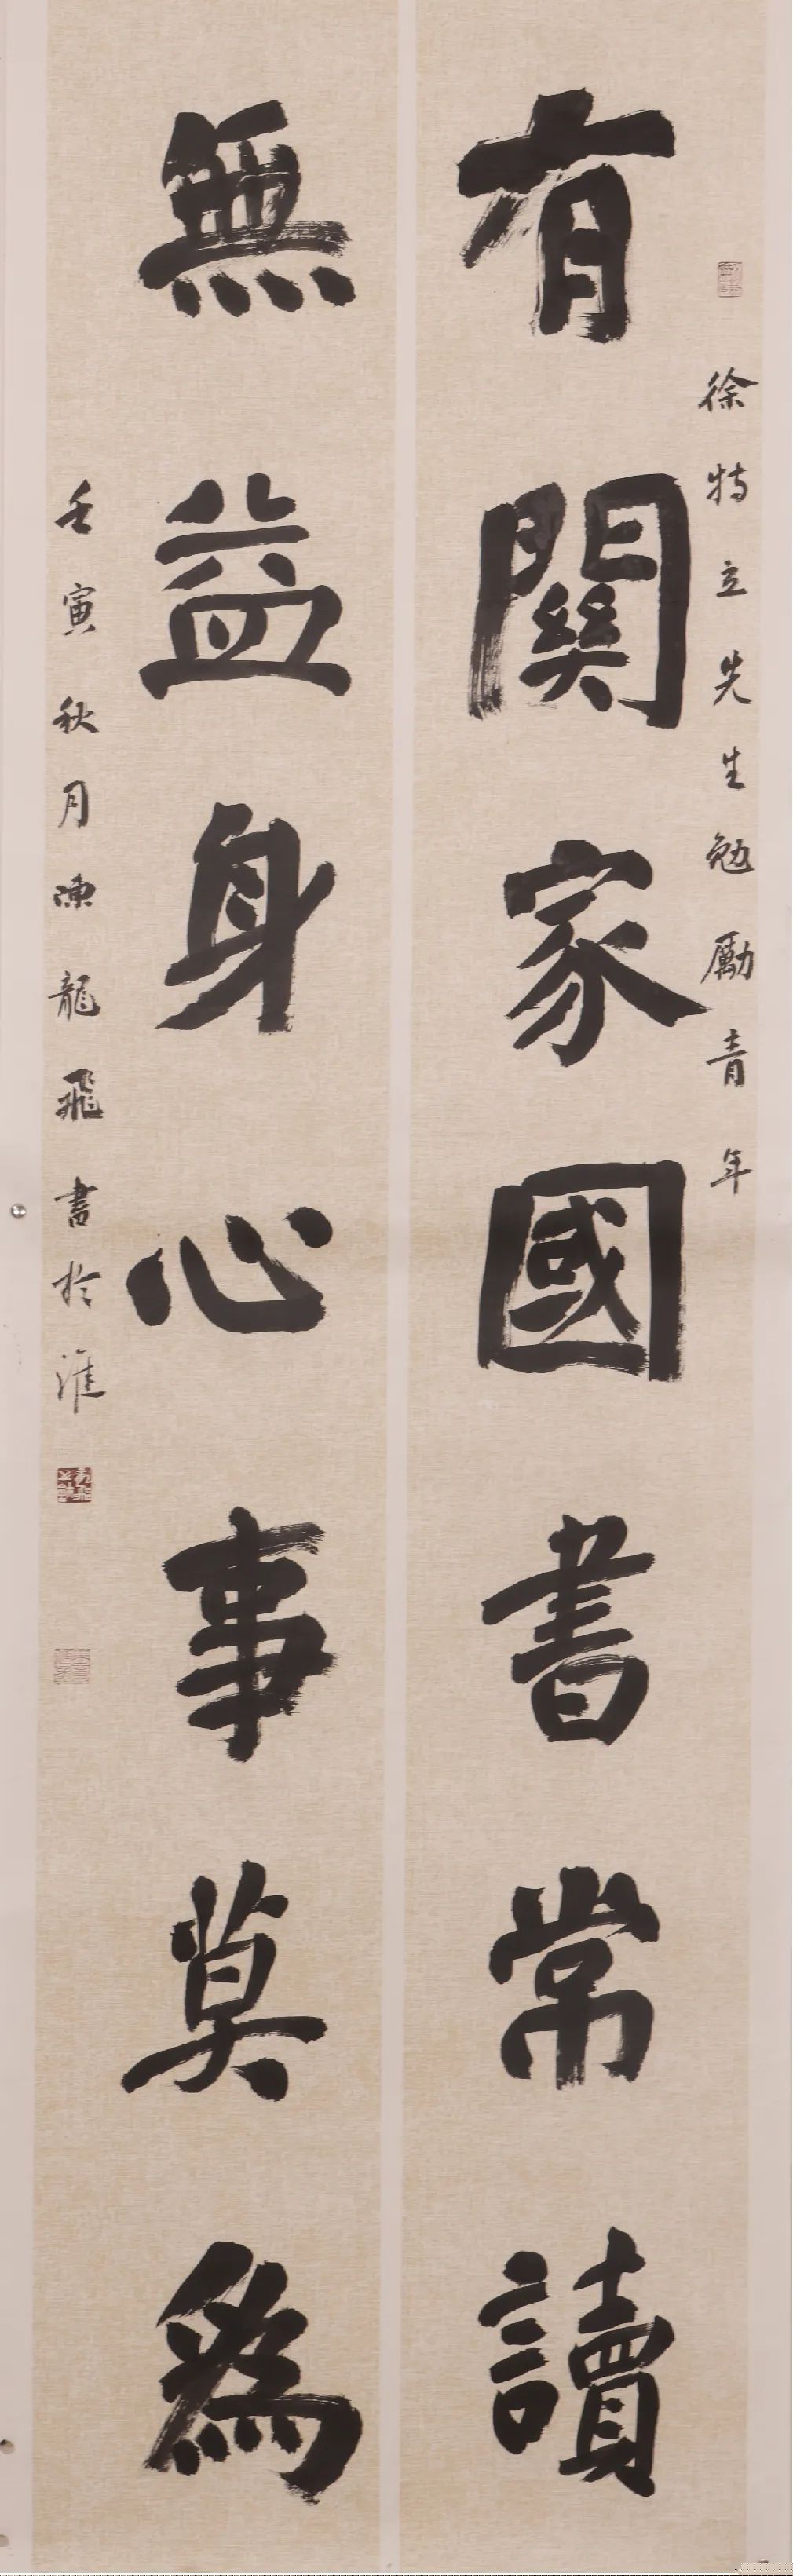 徐特立先生勉勵青年
有關家國書常讀
無益身心事莫為
壬寅秋月陳龍飛書於淮